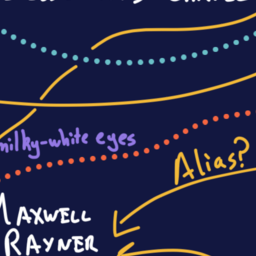 milky-white eyes
Alias?
MAXWELL
RAYNER